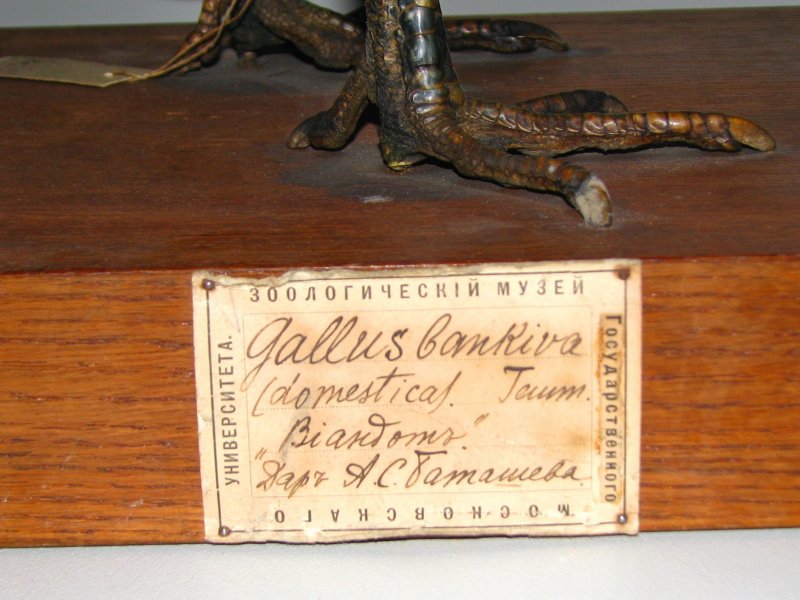 ЗООЛОГИЧЕСКІЙ МУЗЕЙ
Государственного
МОСКОВСКАГО
УНИВЕРСИТЕТА.
Gallus bankiva
(domestica). Temm.
„Віандотъ."
Даръ А.С. Баташева.